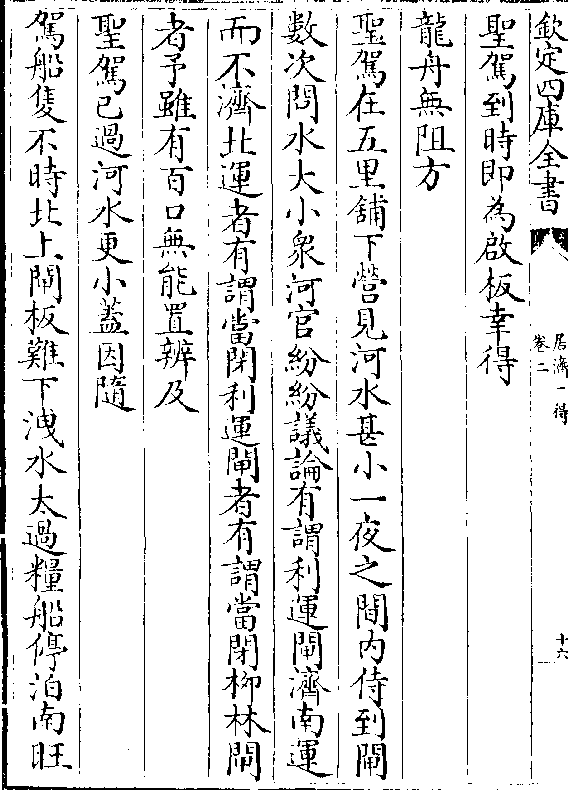 欽定四庫全書
居濟一得
卷二
十六
聖駕到時即為啟板幸得
龍舟無阻方
聖駕在五里舖下營見河水甚小一夜之間内侍到閘
數次問水大小衆河官紛紛議論有謂利運閘濟南運
而不濟北運者有謂當閉利運閘者有謂當閉柳林閘
者予雖有百口無能置辨及
聖駕已過河水更小蓋因隨
駕船隻不時北上閘板難下洩水太過糧船停泊南旺